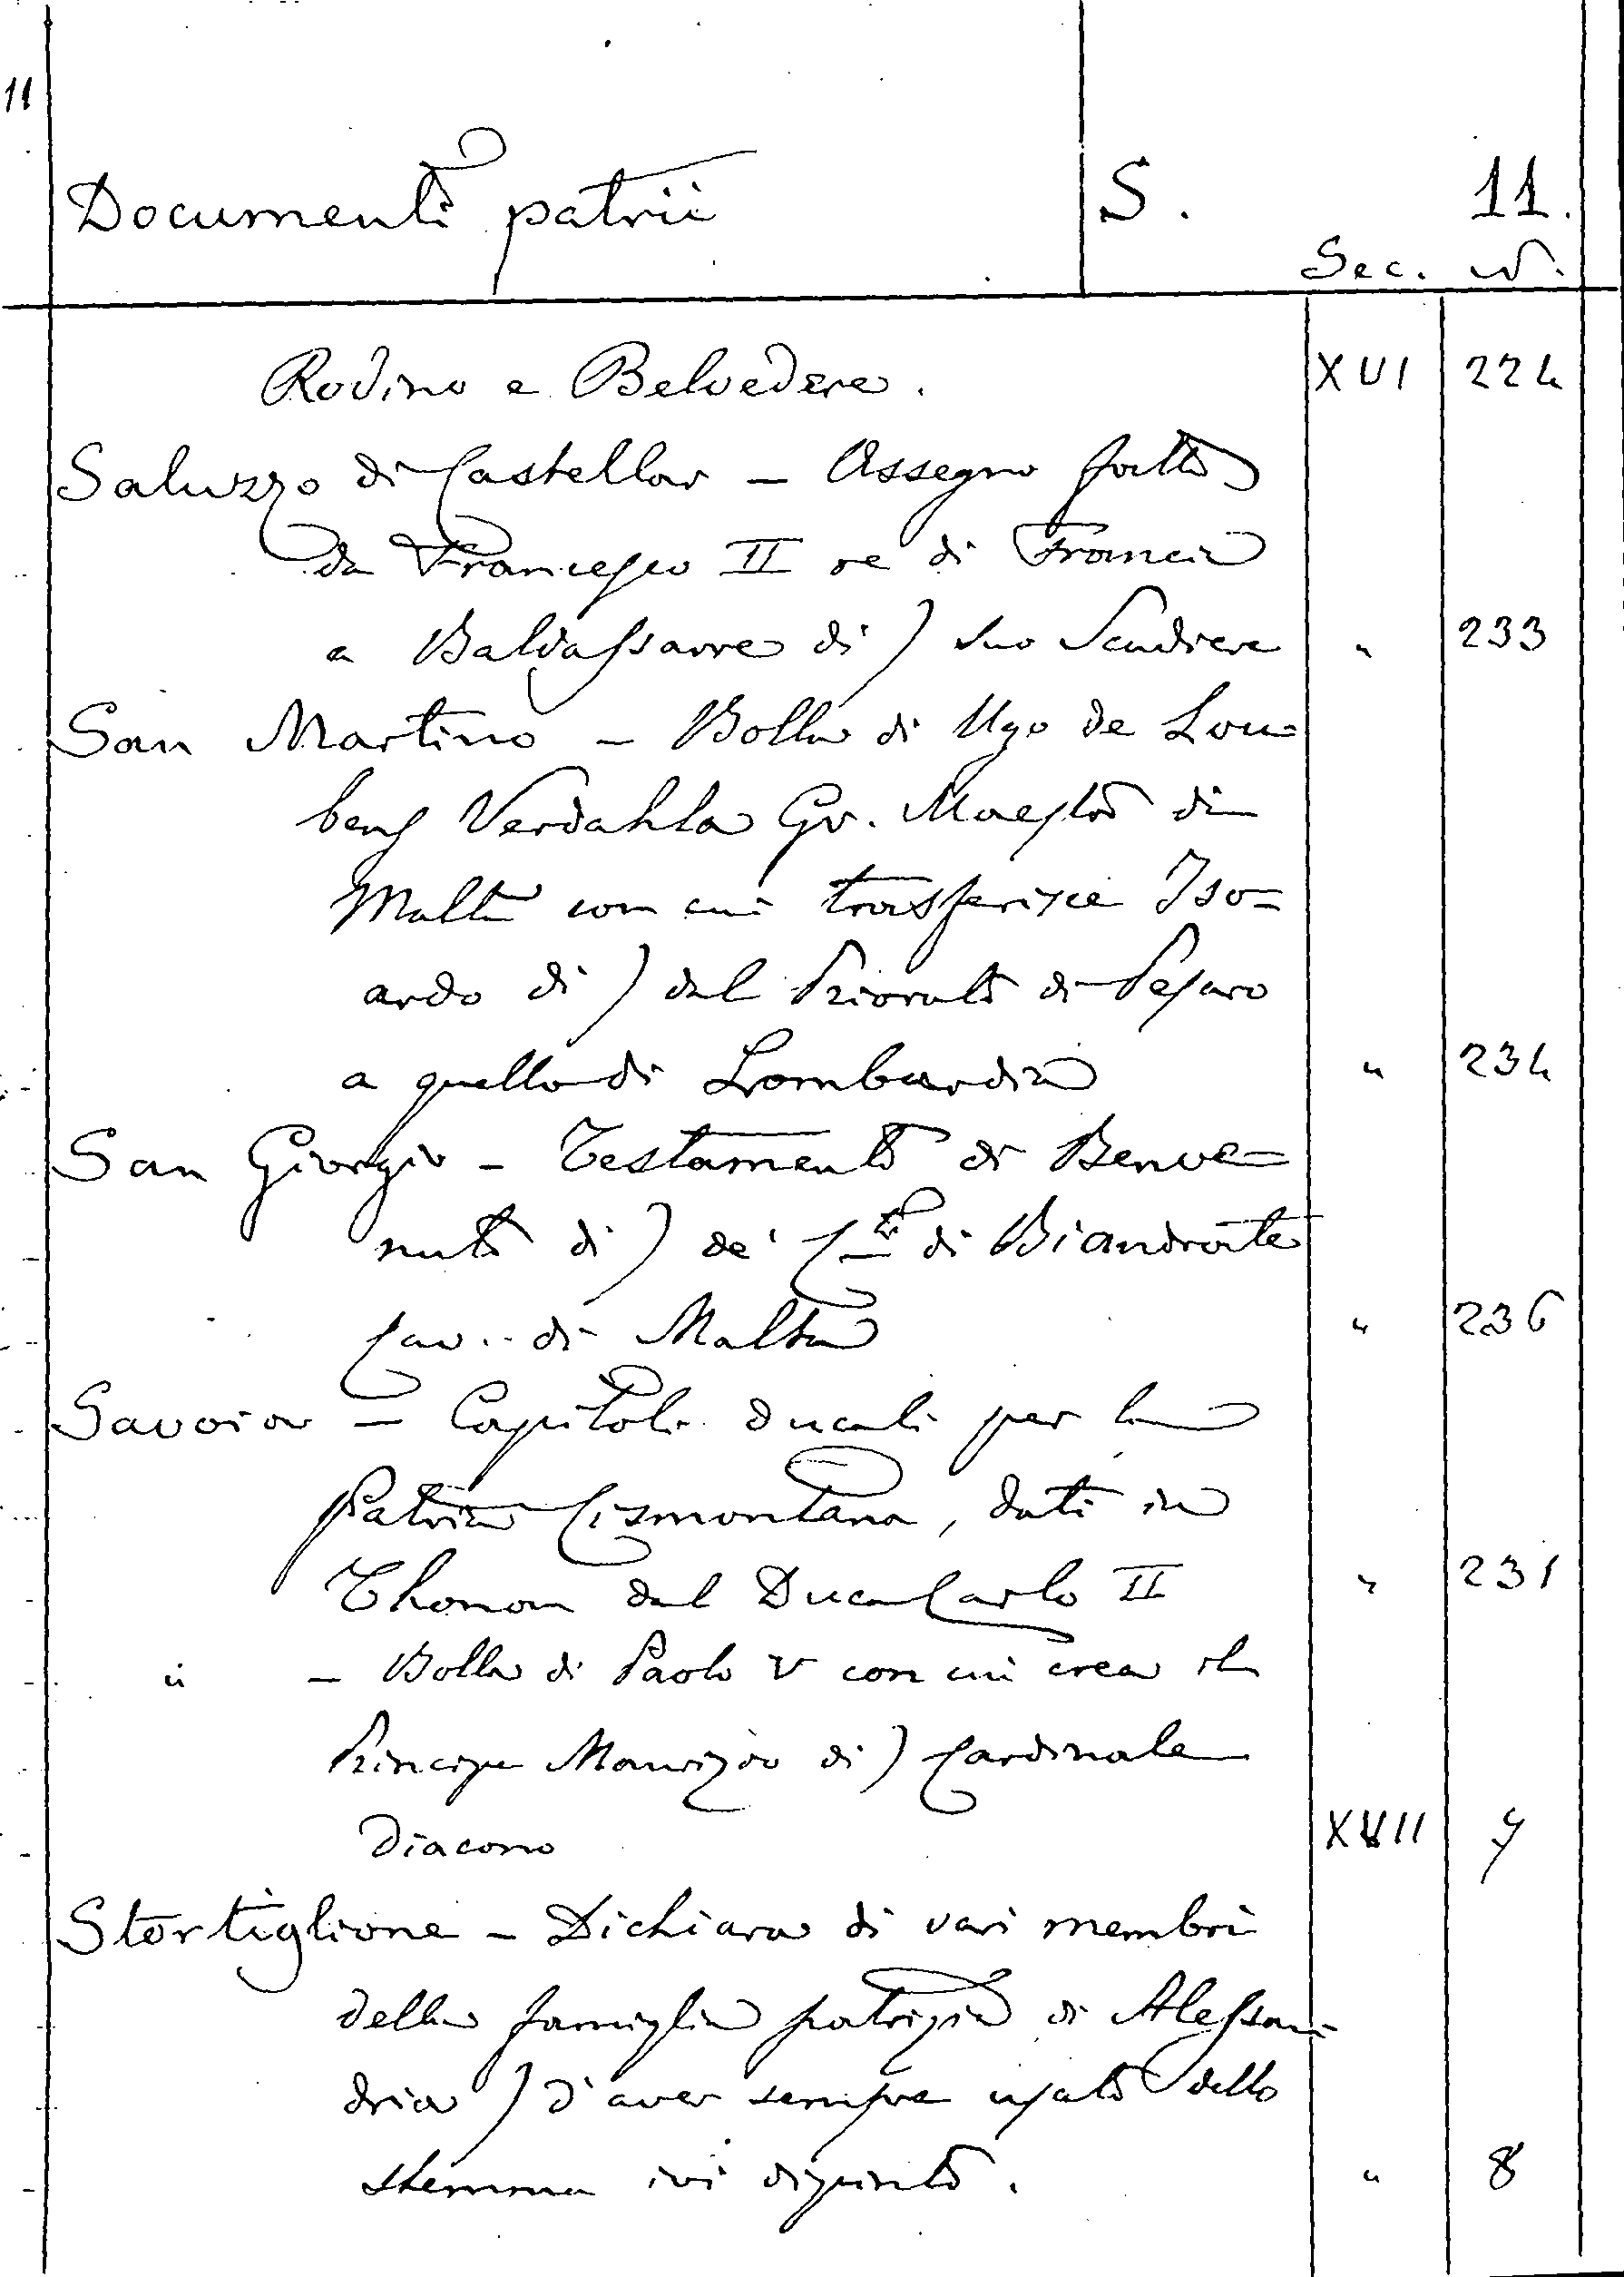 11
Documenti patrii S. 11.
Sec. N.
Rodino e Belvedere. XVI 224
Saluzzo di Castellar - Assegno fatto
da Francesco II re di Francia
a Baldassarre di) suo Scudiere " 233
San Martino - Bolla di Ugo de Lou=
bens Verdahla Gr. Maestro di
Malta con cui trasferisce Iso=
ardo di) dal Priorato di Pesaro
a quello di Lombardia " 234
San Giorgio - Testamento di Benve=
nuto di) de' Cti di Biandrate
Cav. di Malta " 236
Savoia - Capitoli ducali per la
Patria Cismontana, dati in
Thonon dal Duca Carlo II " 231
" - Bolla di Paolo V con cui crea il
Principe Maurizio di) Cardinale
Diacono XVII 7
Stortiglione - Dichiara di vari membri
della famiglia patrizia di Alessan=
dria) d'aver sempre usato dello
stemma ivi dipinto. " 8